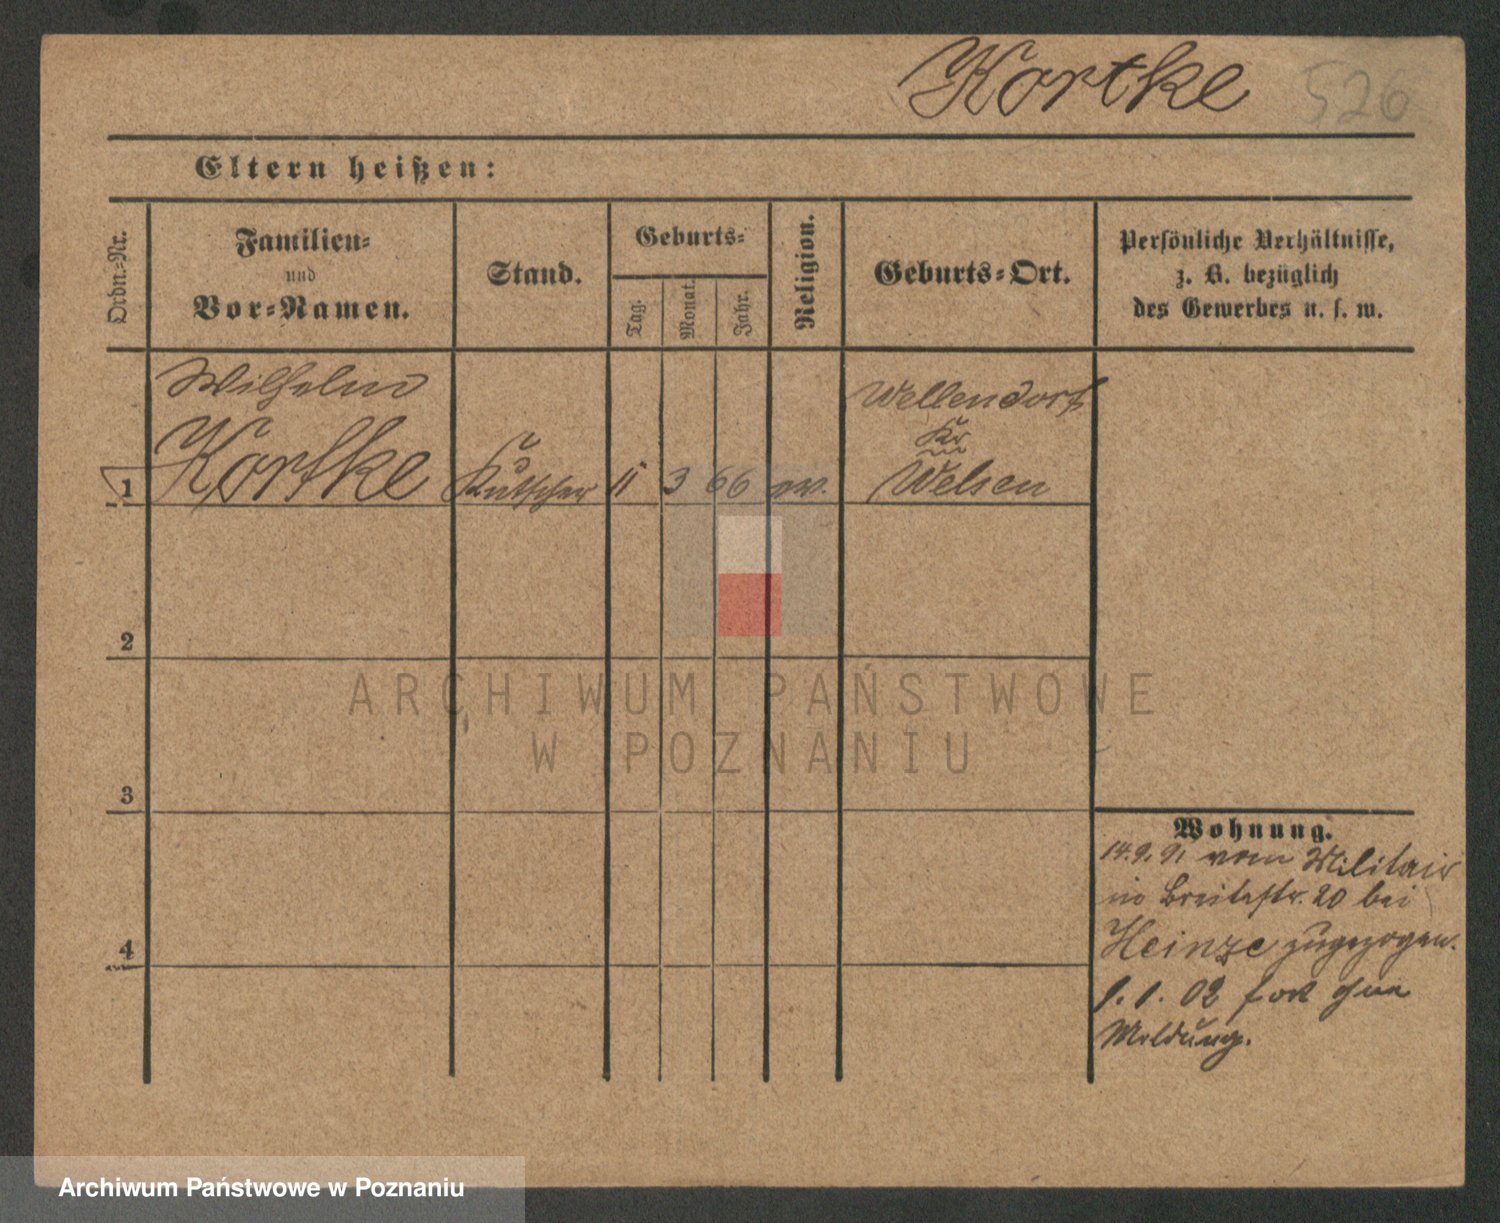 Kortke 526
Eltern heißen:
Ordn.-Nr.
Familien-
und
Vor-Namen.
Stand.
Geburts-
Tag.
Monat.
Jahr.
Religion.
Geburts-Ort.
Persönliche Verhältnisse,
z. B. bezüglich
des Gewerbes u. s. w.
Wilhelm
Kortke
Wellendorf
Kr
1 Kutscher 11 3 66 ev. Welsen
2
3
4
Wohnung.
14.9.91 vom Militair
in Breitestr. 20 bei
Heinze zugezogen.
1. 1. 02 fort ohne
Meldung.
ARCHIWUM PAŃSTWOWE
W POZNANIU
Archiwum Państwowe w Poznaniu